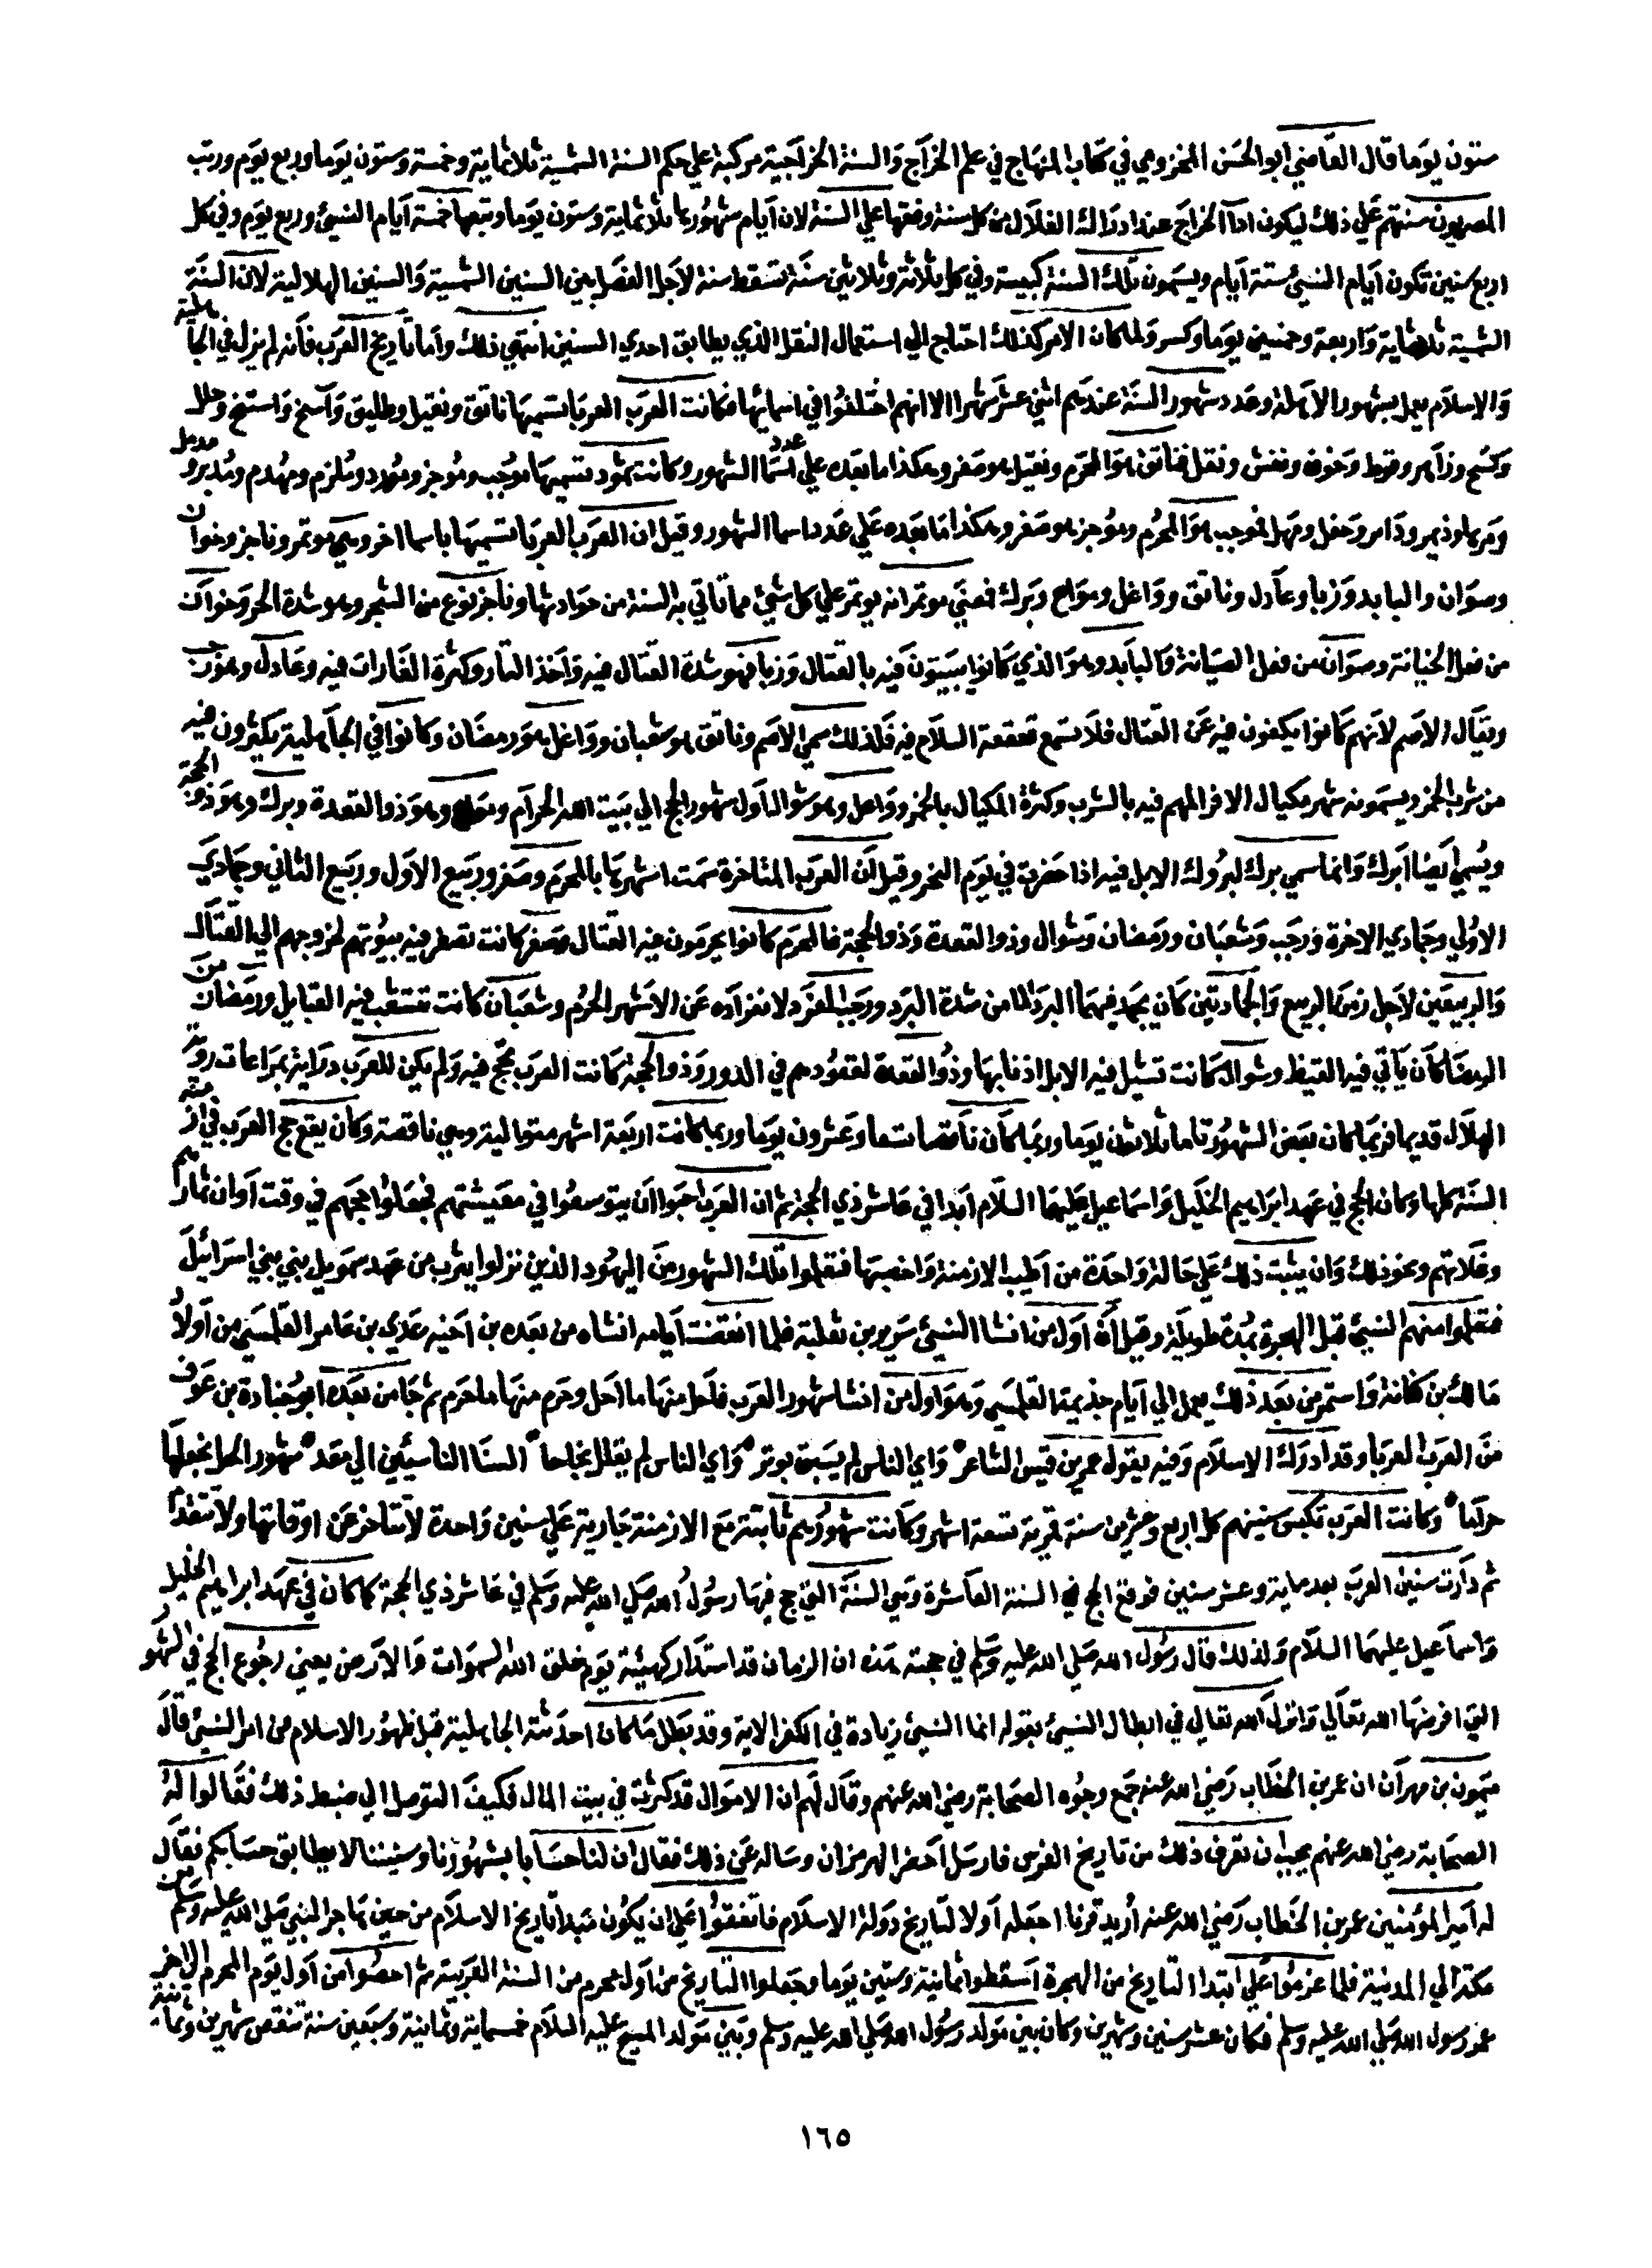 ستون يوما قال القاضي ابو الحسن المخزومي في كتاب المنهاج في علم الخراج والسنة الخراجية مركبة علي حكم السنة الشمسية ثلاثماية وخمسة وستون يوما وربع يوم ورتب
المصريون سنتهم علي ذلك ليكون ادآ الخراج عند ادراك الغلال من كل سنة وفقها علي السنة لان ايام شهورها ثلاثماية وستون يوما وتبعها خمسة ايام النسيئ وربع يوم وفي كل
اربع سنين تكون ايام النسيئ ستة ايام ويسمون تلك السنة كبيسة وفي كل ثلاثة وثلاثين سنة تسقط سنة لاجل الفصل بين السنين الشمسية والسنين الهلالية لان السنة
الشمسية ثلاثماية واربعة وخمسين يوما وكسر ولما كان الامر كذلك احتاج الي استعمال النقل الذي يطابق احدي السنين انتهي ذلك واما تاريخ العرب فانه لم يزل في الجاهلية
والاسلام يعمل بشهور الاهلة وعدد شهور السنة عندهم اثني عشر شهرا الا انهم اختلفوا في اسمايها فكانت العرب العربا تسميها ناتق ونقيل وطليق واسخ واسنخ وحلل
وكسح وزاهر وقوط وحرف ونفش ونقل فناتق هو المحرم ونقيل هو صفر وهكذا ما بعده علي عدد اسما الشهور وكانت ثمود تسميها موجب وموجز ومورد وملزم ومهدم ومدبرو مدبل
ومر بما وذيمر ودامر وحفل ومهل فموجب هو المحرم وموجز هو صفر وهكذا ما بعده علي عدد اسما الشهور وقيل ان العرب العربا تسميها باسما اخر وهي موتمر وناجز وخوان
وصوان والبايد وزبا وعادل وناتق وواغل وهواع وبرك فمعني موتمر انه يوتمر علي كل شئ مما تاتي به السنة من حوادثها وناجز نوع من الشجر وهو شدة الحر وخوان
من فعل الخيانة وصوان من فعل الصيانة والبايد وهو الذي كانوا يبيتون فيه بالقتال وزبا فهو شدة القتال فيه واخذ الثار وكثرة الغارات فيه وعادل وهو رجب
ويقال الاصم لانهم كانوا يكفون فيه عن القتال فلا تسمع قعقعة السلام فيه فلذلك سمي الاصم وناتق هو شعبان وواغل هو رمضان وكانوا في الجاهلية يكثرون فيه
من شرب الخمر ويسمونه شهر مكيال الافراطهم فيه بالشرب وكثرة المكيال بالخمر وواعل وهو شوال اول شهور الحج الي بيت الله الحرام وهواع وهو ذو القعدة وبرك وهو ذو الحجة
ويسمي ايضا ابرك وانما سمي برك لبروك الابل فيه اذا حضرت في يوم النحر وقيل ان العرب المتاخرة سمت اشهرها بالمحرم وصفر وربيع الاول وربيع الثاني وجمادي
الاولي وجمادي الاخرة ورجب وشعبان ورمضان وشوال وذو القعدة وذو الحجة فالمحرم كانوا يحرمون فيه القتال وصفر كانت تصفر فيه بيوتهم لخروجهم الي القتال
والربيعين لاجل زمن الربيع والجمادتين كان يجمد فيهما البرد الما من شدة البرد ورجب المفرد لانفراده عن الاشهر الحرم وشعبان كانت تتشعب فيه القبايل ورمضان من
الرمضا كان ياتي فيه القيظ وشوال كانت تشيل فيه الابل اذنابها وذو القعدة لقعودهم في الدور وذو الحجة كانت العرب تحج فيه ولم يكن للعرب دراية بمراعات روية
الهلال قديما فربما كان بعض الشهور تاما ثلاثين يوما وربما كان ناقصا تسعا وعشرون يوما وربما كانت اربعة اشهر متوالية وهي ناقصة وكان يقع حج العرب في ازمنة
السنة كلها وكان الحج في عهد ابراهيم الخليل واسماعيل عليهما السلام ابدا في عاشر ذي الحجة ثم ان العرب احبوا ان يتوسعوا في معيشتهم فجعلوا حجهم في وقت اوان ثمارهم
وغلاتهم ونحو ذلك وان يثبت ذلك علي حالة واحدة من اطيب الازمنة واخصبها فتعلموا تلك الشهور من اليهود الذين نزلوا يثرب من عهد سمويل نبي بني اسرائيل
فتعلموا منهم النسيئ قبل الهجرة بمدة طويلة وقيل ان اول من انشا النسيئ سرير بن ثعلبة فلما انقضت ايامه انشاه من بعده بن اخيه عدي بن عامر القلمسي من اولاد
مالك بن كنانة واستمر من بعد ذلك يعمل الي ايام حذيمة القلمسي وهو اول من انشا شهور العرب فاحل منها ما احل وحرم منها ما حرم ثم جا من بعده ابو جنادة بن عوف
من العرب العربا وقد ادرك الاسلام وفيه يقول عمر بن قيس الشاعر واي الناس لم يسبق بوتر واي الناس لم يعلل نجاحا السنا الناسئين الي معد شهور الحل نجعلها
حراما وكانت العرب تكبس سنينهم كل اربع وعشرين سنة قمرية تسعة اشهر وكانت شهورهم ثابتة مع الازمنة جارية علي سنين واحدة لا تتاخر عن اوقاتها ولا تتقدم
ثم دارت سنين العرب بعد ماية وعشر سنين فوقع الحج في السنة العاشرة وهي السنة التي حج فيها رسول الله صلي الله عليه وسلم في عاشر ذي الحجة كما كان في عهد ابراهيم الخليل
واسماعيل عليهما السلام ولذلك قال رسول الله صلي الله عليه وسلم في حجته هذه ان الزمان قد استدار كهيئة يوم خلق الله السموات والارض يعني رجوع الحج في الشهور
التي افرضها الله تعالي وانزل الله تعالي في ابطال النسيئ بقوله انما النسيئ زيادة في الكفر الاية وقد بطل ما كان احدثته الجاهلية قبل ظهور الاسلام من امر النسيئ قال
ميمون بن مهران ان عمر بن الخطاب رضي الله عنه جمع وجوه الصحابة رضي الله عنهم وقال لهم ان الاموال قد كثرت في بيت المال فكيف التوصل الي ضبط ذلك فقالوا له
الصحابة رضي الله عنهم يجب ان نعرف ذلك من تاريخ الفرس فارسل احضر الهرمزان وساله عن ذلك فقال ان لنا حسابا بشهورنا وسنيننا لا يطابق حسابكم فقال
له امير المؤمنين عمر بن الخطاب رضي الله عنه اريد قرنا اجعله اولا لتاريخ دولة الاسلام فاتفقوا علي ان يكون مبدا تاريخ الاسلام من حين هاجر النبي صلي الله عليه وسلم من
مكة الي المدينة فلما عزموا علي ابتدا التاريخ من الهجرة اسقطوا ثمانية وستين يوما وجعلوا التاريخ من اول محرم من السنة العربية ثم احصوا من اول يوم المحرم الي اخر
عمر رسول الله صلي الله عليه وسلم فكان عشر سنين وشهرين وكان بين مولد رسول الله صلي الله عليه وسلم وبين مولد المسيح عليه السلام خمسماية وثمانية وسبعين سنة تنقص شهرين وثمانية
١٦٥